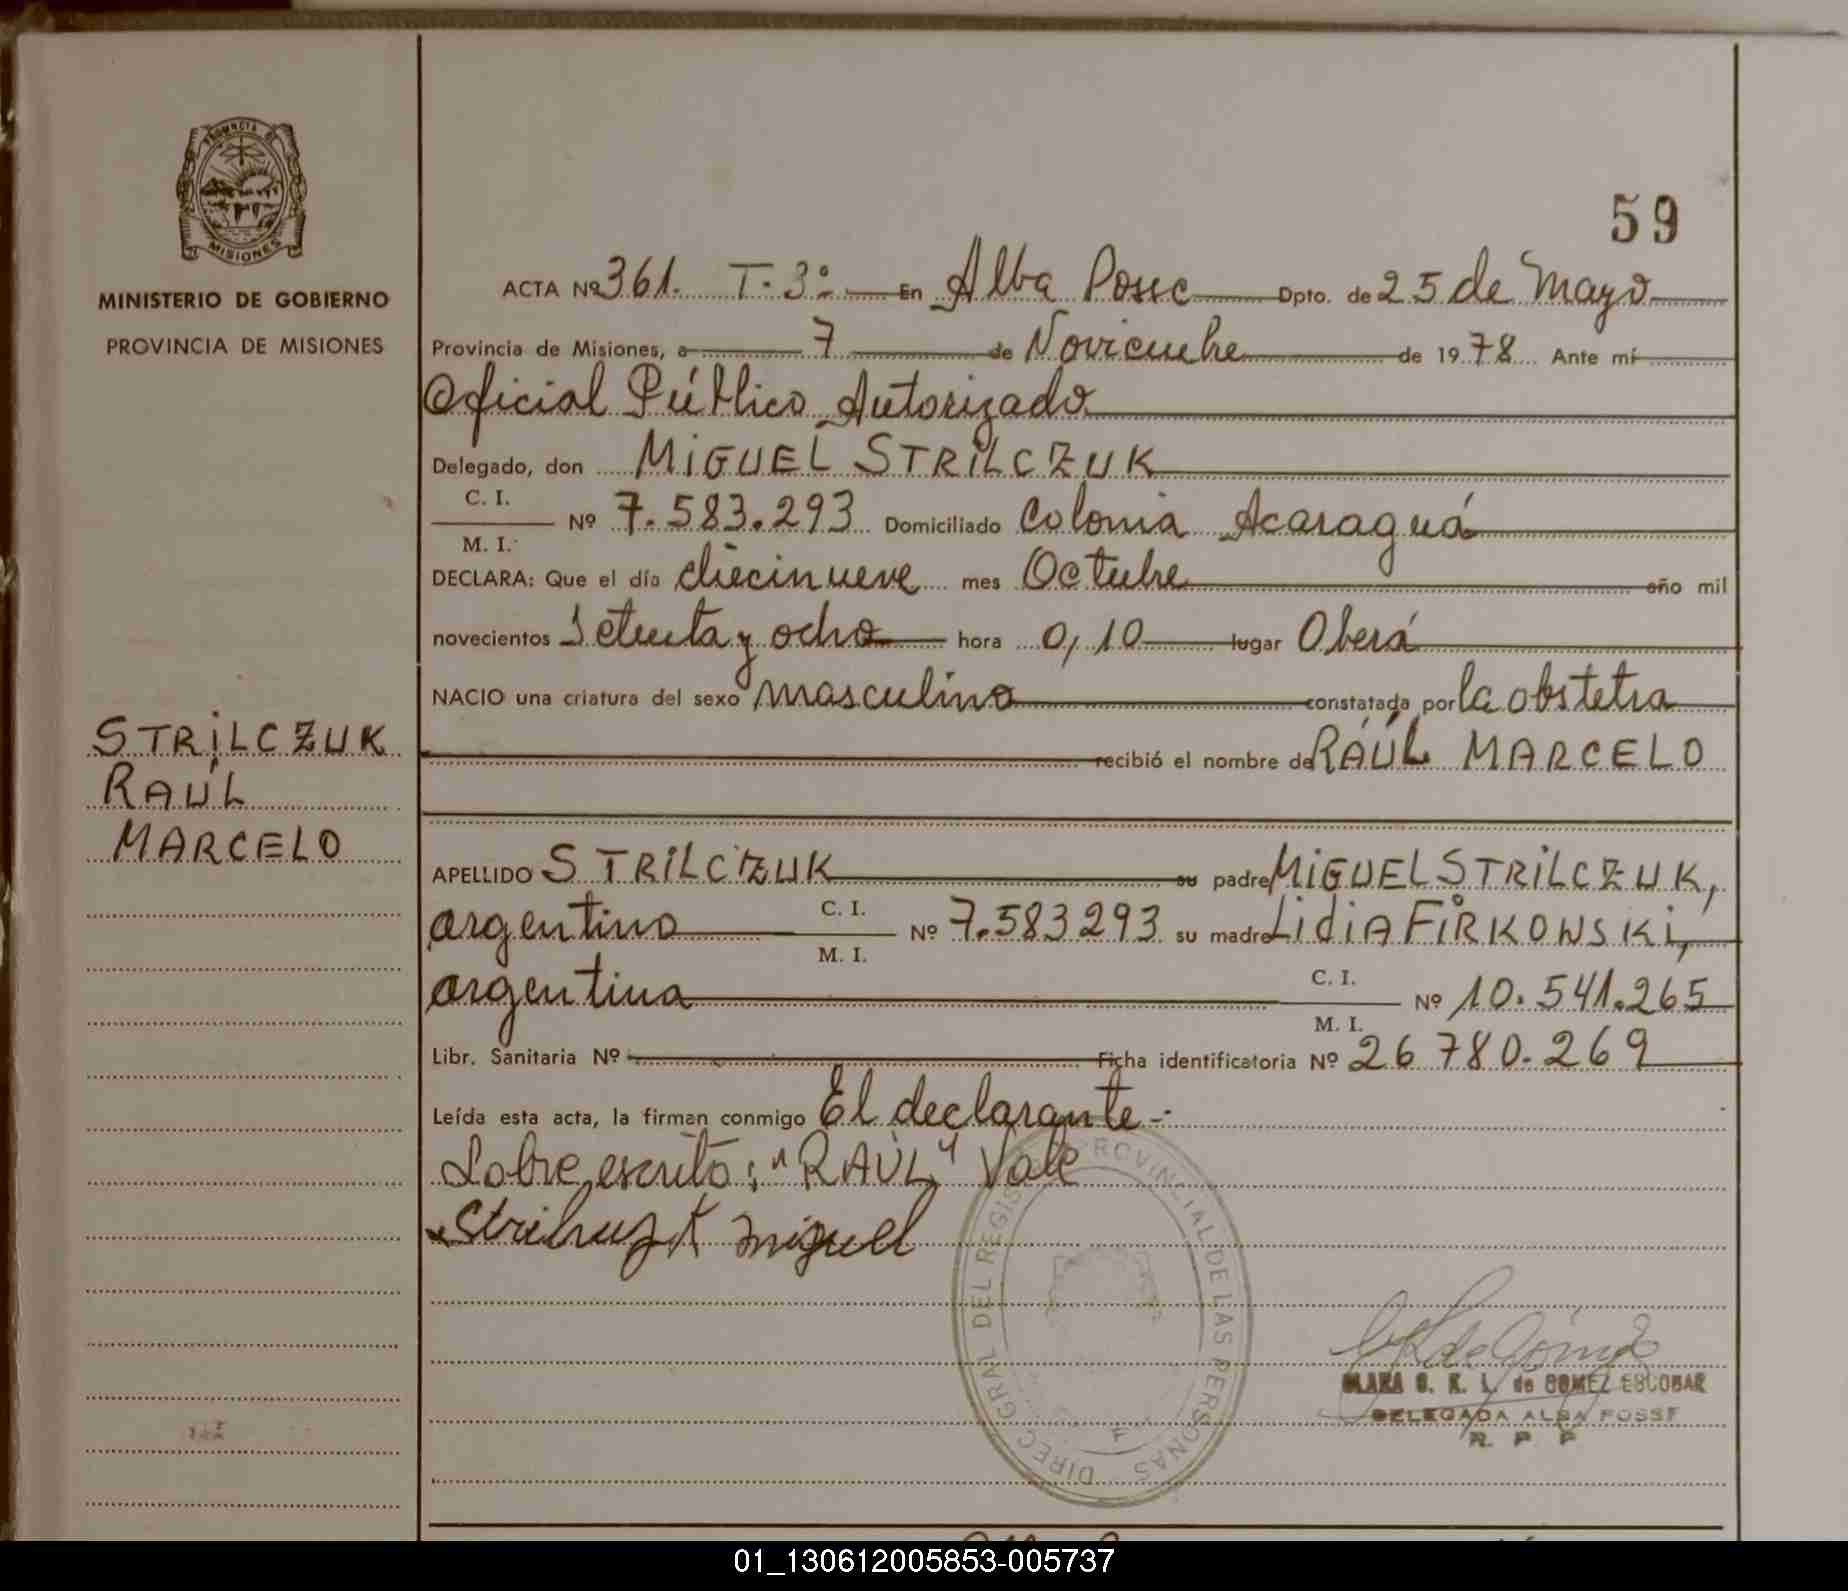 PROVINCIA DE
MISIONES
MINISTERIO DE GOBIERNO
PROVINCIA DE MISIONES
STRILCZUK
RAÚL
MARCELO
59
ACTA Nº 361. T. 3º En Alba Posse Dpto. de 25 de Mayo
Provincia de Misiones, a 7 de Noviembre de 1978 Ante mí
Oficial Público Autorizado
Delegado, don MIGUEL STRILCZUK
C. I.
Nº 7.583.293 Domiciliado Colonia Acaraguá
M. I.
DECLARA: Que el día diecinueve mes Octubre año mil
novecientos setenta y ocho hora 0,10 lugar Oberá
NACIO una criatura del sexo masculino constatada por la obstetra
recibió el nombre de RAÚL MARCELO
APELLIDO STRILCZUK su padre MIGUEL STRILCZUK,
argentino C. I. Nº 7.583293 su madre LIDIA FIRKOWSKI,
M. I.
argentina C. I. Nº 10.541.265
M. I.
Libr. Sanitaria Nº Ficha identificatoria Nº 26780.269
Leída esta acta, la firman conmigo El declarante.-
Sobre escrito: "RAÚL" Vale
Strilczuk Miguel
DIREC. GRAL DEL REGIS PROVINCIAL DE LAS PERSONAS
de GOMEZ ESCOBAR
DELEGADA ALBA POSSE
R. P. P.
01_130612005853-005737